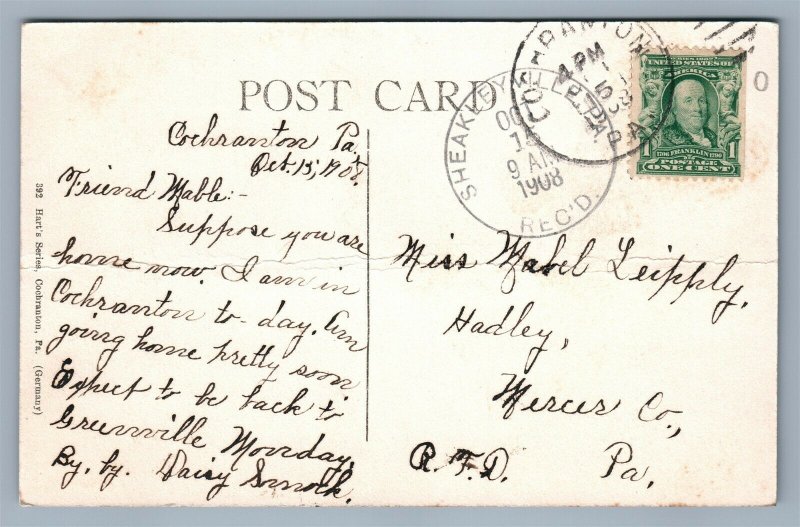 POST CARD
COCHRANTON
4 PM
1908
PA.
SHEAKLEYVILLE
OCT
15
9 AM
1908
REC'D.
SERIES 1902
UNITED STATES OF
AMERICA
1706 FRANKLIN 1790
1 POSTAGE 1
ONE CENT
O
Cochranton Pa.
Oct. 15, 1908.
Friend Mable:-
Suppose you are
home now. I am in
Cochranton to-day. Am
going home pretty soon
Expect to be back to
Greenville Monday.
By, by. Daisy Smock.
Miss Mabel Leipply,
Hadley,
Mercer Co.,
R.F.D. Pa.
392 Hart's Series, Cochranton, Pa. (Germany)